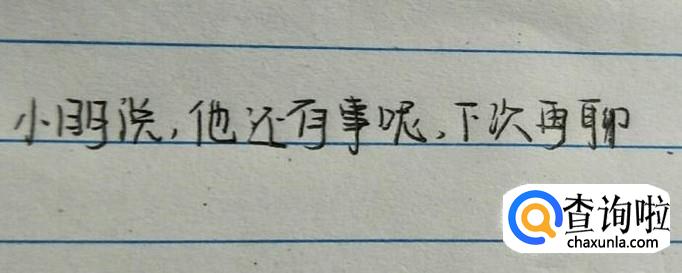 小明说，他还有事呢、下次再聊
查询啦
chaxunla.com